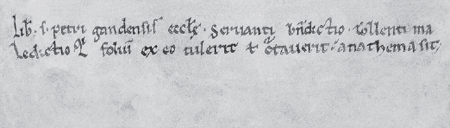 Lib̄. s. petri gandensis eccłę. Servanti bn̄dictio. tollenti ma
ledictio q̄ foliū ex eo tulerit ł c̄tauerit. anathema sit.